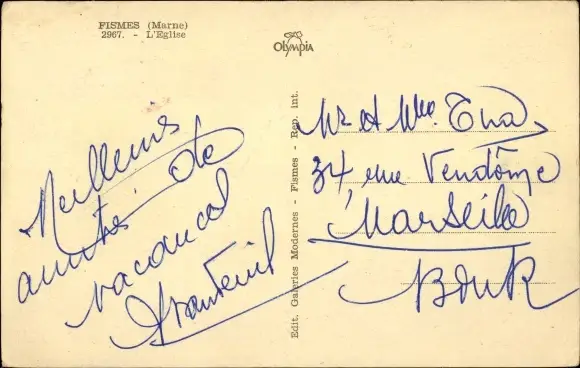 FISMES (Marne)
2967. - L'Eglise
OLYMPIA
Meilleures
amitiés de
vacances
Edit. Galeries Modernes - Fismes - Rep. int.
Mr et Mme.
34 rue Vendôme
Marseille
BduR